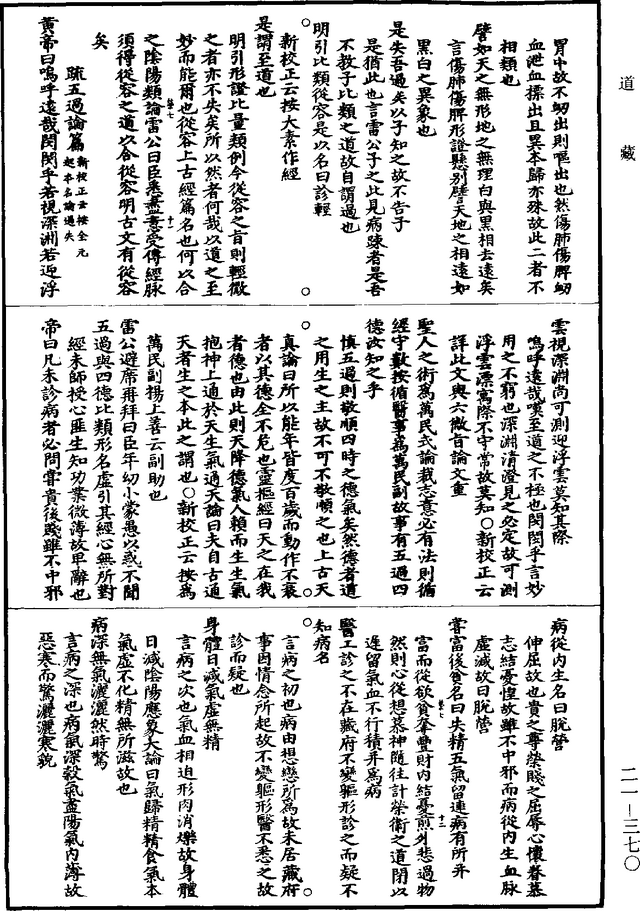 道藏
胃中故不衂出則嘔出也然傷肺傷脾衂
血泄血摽出且異本歸亦殊故此二者不
相類也
譬如天之無形地之無理白與黑相去遠矣
言傷肺傷脾形證懸別譬天地之相遠如
黑白之異象也
是失吾過矣以子知之故不告子
是猶此也言雷公子之此見病踈者是吾
不教子比類之道故自謂過也
明引比類從容是以名曰診輕
新校正云按太素作經
是謂至道也
明引形證比量類例今從容之旨則輕微
之者亦不失矣所以然者何哉以道之至
妙而能爾也從容上古經篇名也何以合
之陰陽類論雷公曰臣悉盡意受傳經脉
頌得從容之道以合從容明古文有從容
矣
疏五過論篇新校正云按全元起本名論過失
黃帝曰嗚呼遠哉閔閔乎若視深淵若迎浮
雲視深淵尚可測迎浮雲莫知其際
嗚呼遠哉嘆至道之不極也閔閔乎言妙
用之不窮也深淵清澄見之必定故可測
浮雲漂寓際不守常故莫知○新校正云
詳此文與六微旨論文重
聖人之術爲萬民式論裁志意必有法則循
經守數按循醫事爲萬民副故事有五過四
德汝知之乎
慎五過則敬順四時之德氣矣然德者道
之用生之主故不可不敬順之也上古天
真論曰所以能年皆度百歲而動作不衰
者以其德全不危也靈樞經曰天之在我
者德也由此則天降德氣人賴而生生氣
抱神上通於天生氣通天論曰夫自古通
天者生之本此之謂也○新校正云按爲
萬民副楊上善云副助也
雷公避席再拜曰臣年幼小蒙愚以惑不聞
五過與四德比類形名虛引其經心無所對
經未師授心匪生知功業微薄故卑辭也
帝曰凡未診病者必問嘗貴後賤雖不中邪
病從內生名曰脫營
伸屈故也貴之尊榮賤之屈辱心懷眷慕
志結憂惶故雖不中邪而病從內生血脉
虛減故曰脫營
嘗富後貧名曰失精五氣留連病有所并
富而從欲貧奪豐財內結憂煎外悲過物
然則心從想慕神隨往計榮衛之道閉以
遲留氣血不行積并爲病
醫工診之不在藏府不變軀形診之而疑不
知病名
言病之初也病由想戀所爲故未居藏府
事因情念所起故不變軀形醫不悉之故
診而疑也
身體日減氣虛無精
言病之次也氣血相迫形肉消爍故身體
日減陰陽應象大論曰氣歸精精食氣本
氣虛不化精無所滋故也
病深無氣灑灑然時驚
言病之深也病氣深穀氣盡陽氣內薄故
惡寒而驚灑灑寒貌
二一—三七〇